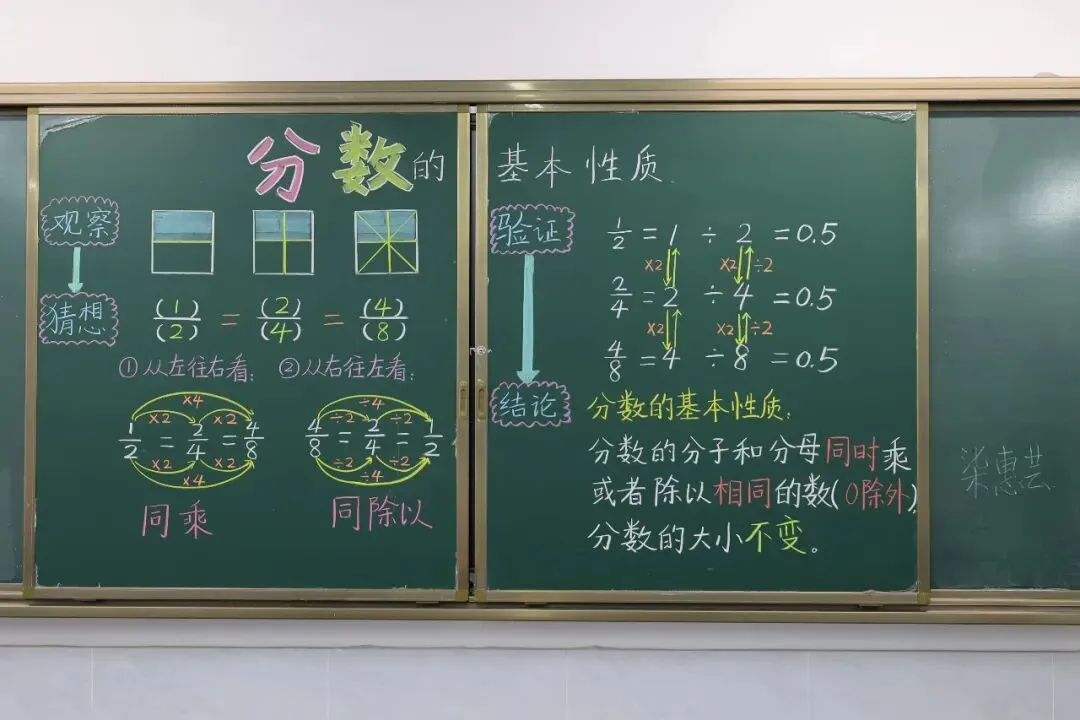 分数的基本性质
观察
猜想
(1)/(2) = (2)/(4) = (4)/(8)
①从左往右看: ②从右往左看:
×4
×2 ×2
1/2 = 2/4 = 4/8
×2 ×2
×4
同乘
÷4
÷2 ÷2
4/8 = 2/4 = 1/2
÷2 ÷2
÷4
同除以
验证
1/2 = 1 ÷ 2 = 0.5
×2 ×2 ÷2
2/4 = 2 ÷ 4 = 0.5
×2 ×2 ÷2
4/8 = 4 ÷ 8 = 0.5
结论
分数的基本性质:
分数的分子和分母同时乘
或者除以相同的数(0除外)
分数的大小不变。